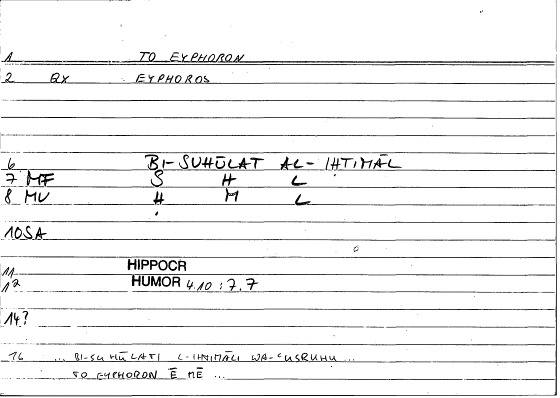 1 TO EYPHORON
2 QX EYPHOROS
6 BI-SUHŪLAT AL-IḤTIMĀL
7 MF S H L
8 MV Ḥ M L
10 SA
11 HIPPOCR
12 HUMOR 4.10 : 7.7
14?
16 ... BI-SUHŪLATI L-IḤTIMĀLI WA-ʿUSRUHU ...
TO EYPHORON Ē MĒ ...